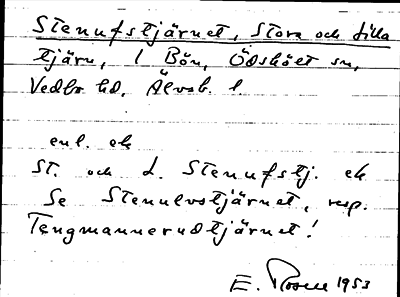 Stenufstjärnet, Stora och Lilla
tjärn, 1 Bön, Ödskölt sn,
Vedbo hd, Älvsb. l.
enl. ek
St. och L. Stenufstj. ek
Se Stenulvstjärnet, resp.
Tengmannerudtjärnet!
E. Rosell 1953